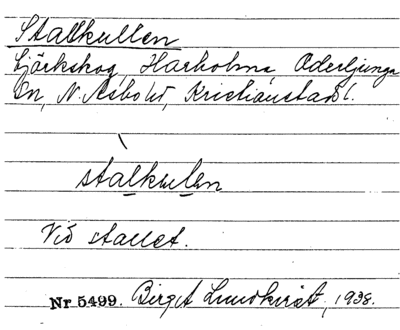 Stallkullen
Björkskog, Harholma, Oderljunga
Sn, N. Åsbo hd, Kristianstads l.
stalkulen
Vid stallet.
Nr 5499. Birgit Lundkvist, 1938.